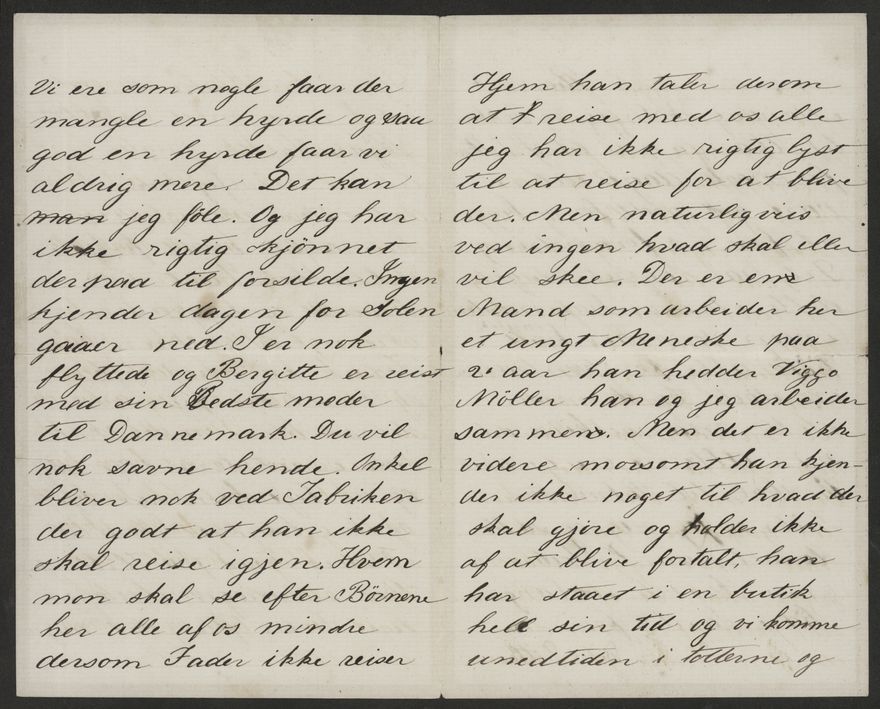 Vi ere som nogle faar der
mangle en hyrde og saa
god en hyrde faar vi
aldrig mere. Det kan
man jeg föle. Og jeg har
ikke rigtig skjönnet
der paa til forsilde. Ingen
kjender dagen for Solen
gaaer ned. I er nok
flyttede og Bergitte er reist
med sin Bedste moder
til Dannemark. Du vil
nok savne hende. Onkel
bliver nok ved Fabriken
der godt at han ikke
skal reise igjen. Hvem
mon skal se efter Börnene
her alle af os mindre
dersom Fader ikke reiser
Hjem han taler derom
at reise med os alle
jeg har ikke rigtig lyst
til at reise for at blive
der. Men naturligviis
ved ingen hvad skal eller
vil skee. Der er en
Mand som arbeider her
et ungt Meneske paa
21 aar han hedder Viggo
Möller han og jeg arbeider
sammen. Men det er ikke
videre morsomt han kjen-
der ikke noget til hvad der
skal gjöre og holder ikke
af at blive fortalt, han
har staaet i en butik
hell sin tid og vi komme
unedtiden i totterne og